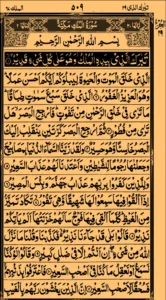 تبرك الذی ٢٩ ٥٠٩ الملك ٦٧
سورة الملك مكية
بسم الله الرحمن الرحيم
تبرك الذی بيده الملك وهو علی كل شیء قدير
الذی خلق الموت والحيوة ليبلوكم ايكم احسن عملا
وهو العزيز الغفور الذی خلق سبع سموت طباقا
ما تری فی خلق الرحمن من تفوت فارجع البصر هل
تری من فطور ثم ارجع البصر كرتين ينقلب اليك
البصر خاسئا وهو حسير ولقد زينا السماء الدنيا بمصابيح
وجعلنها رجوما للشيطين واعتدنا لهم عذاب السعير
وللذين كفروا بربهم عذاب جهنم وبئس المصير
اذا القوا فيها سمعوا لها شهيقا وهی تفور تكاد تميز
من الغيظ كلما القی فيها فوج سالهم خزنتها الم ياتكم
نذير قالوا بلی قد جاءنا نذير فكذبنا وقلنا ما نزل
الله من شیء ان انتم الا فی ضلل كبير وقالوا لو كنا
نسمع او نعقل ما كنا فی اصحب السعير